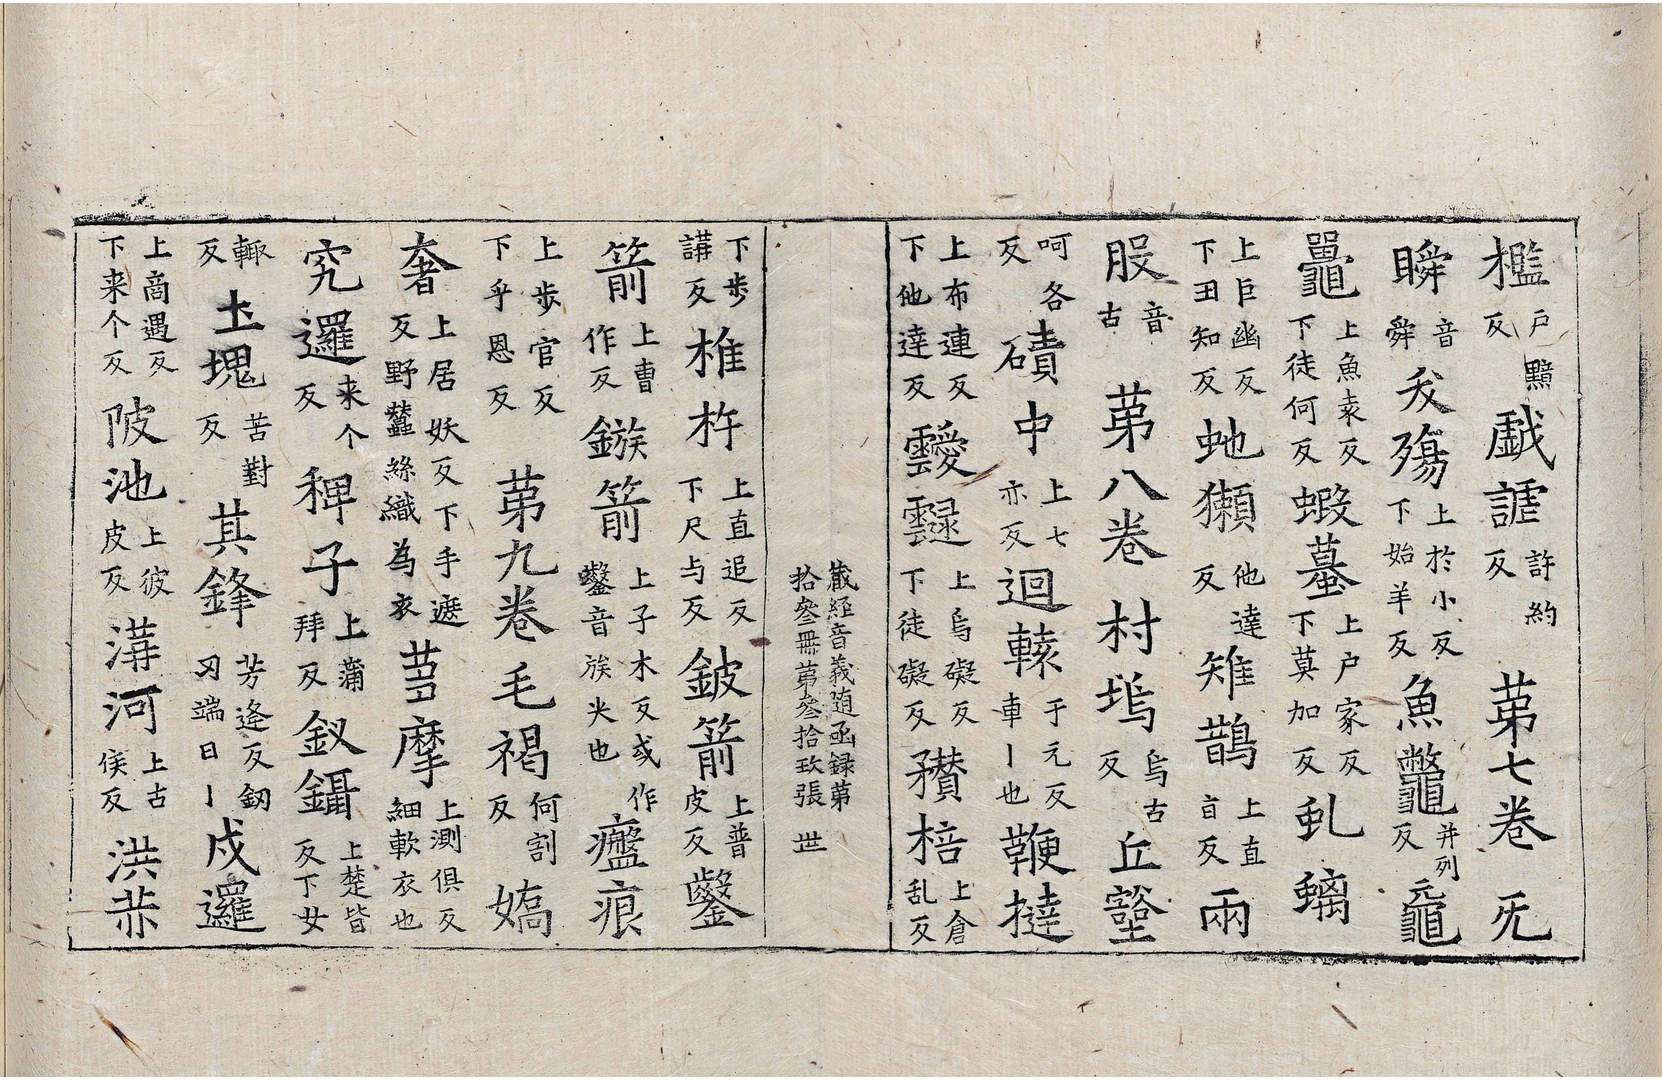 檻戶黤反戱謔許約反第七卷旡
瞬音舜夭殤上於小反下始羊反魚鼈并列反黿
鼉上魚袁反下徒何反蝦蟇上戶家反下莫加反虬螭
上巨幽反下丑知反虵獺他達反雉鵲上直旨反兩
股音古第八卷村塢烏古反丘壑
呵各反磧中上七亦反迴轅于元反車丨也鞭撻
上布連反下他達反靉靆上烏礙反下徒礙反穳棓上倉乱反
藏經音義随函録第
拾叁冊第叁拾玖張 世
下步講反椎杵上直追反下尺与反鈹箭上普皮反鑿
箭上曹作反鏃箭上子木反或作鑿音族尖也瘢痕
上步官反下乎恩反第九卷毛褐何割反嬌
奢上居妖反下手遮反野蠶絲織為衣芻摩上測俱反細軟衣也
究邏来个反稗子上蒲拜反釵鑷上楚皆反下女
輒反土塊苦對反其鋒芳逢反釰刃端曰丨戍邏
上商遇反下来个反陂池上彼皮反溝河上古侯反洪